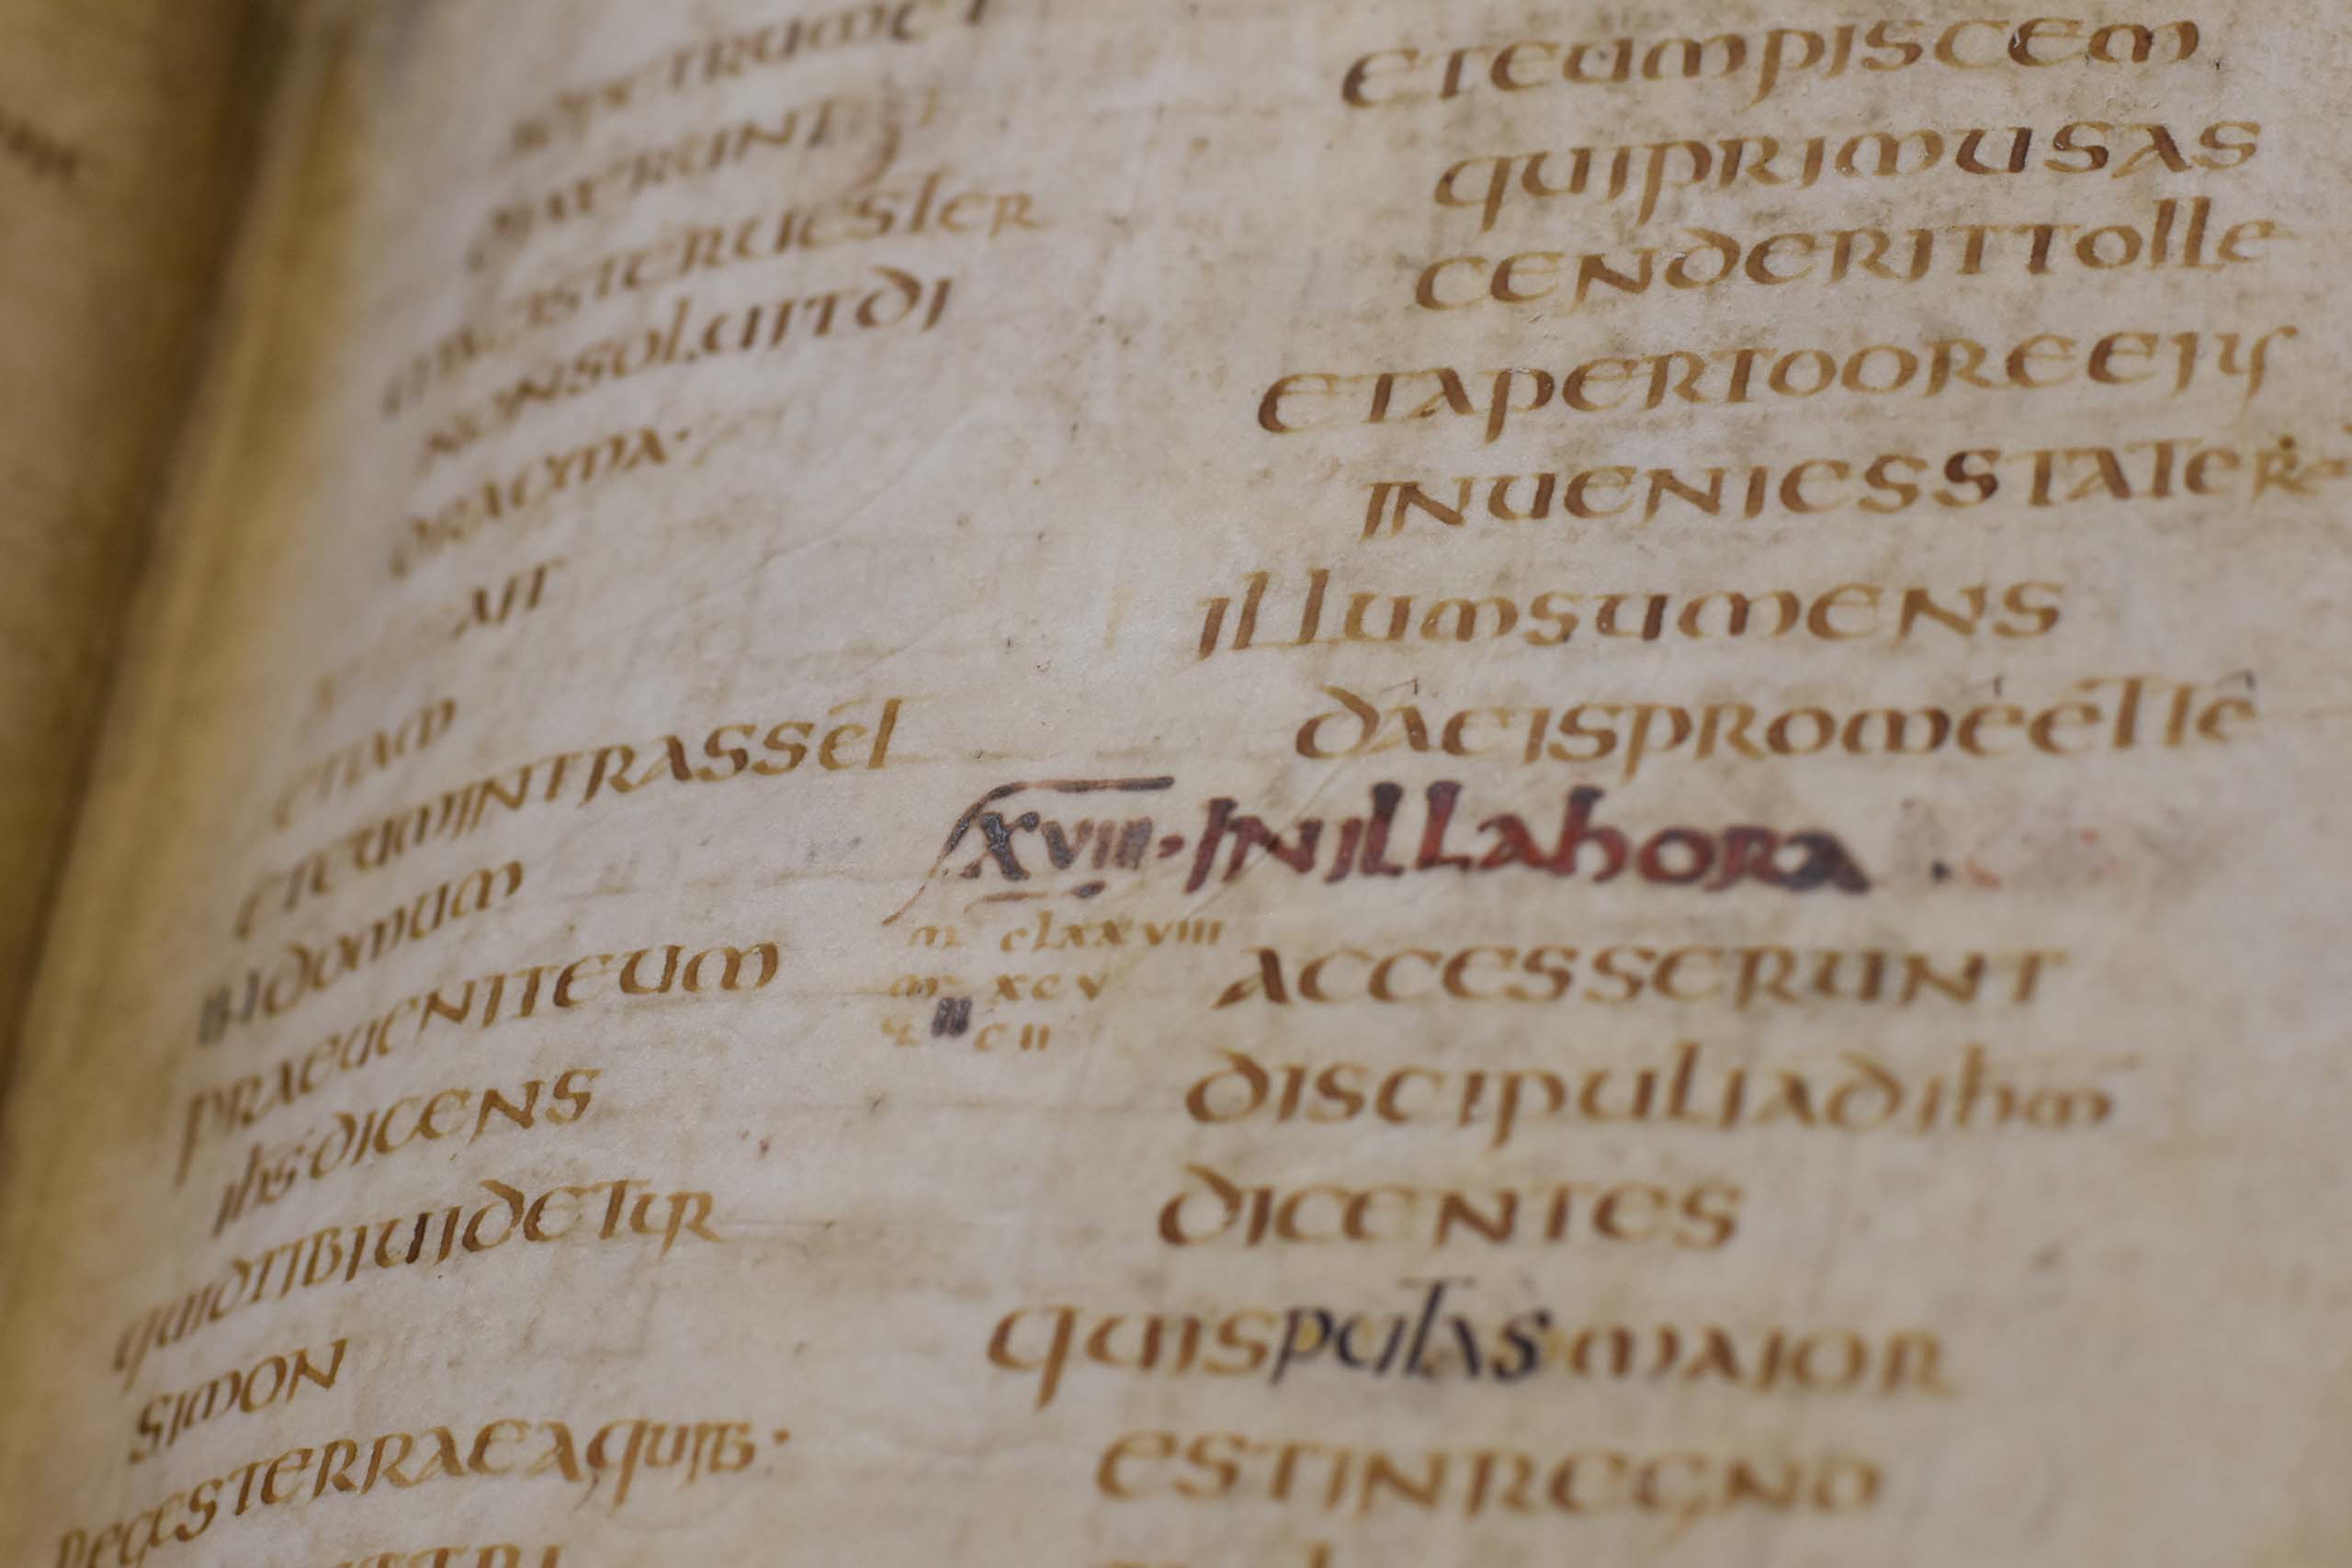 ETRUMET
DIXERUNT
MAGISTERUESTER
NONSOLUITDI
DRACMA·
AIT
ETIAM
ETCUMINTRASSET
INDOMUM
PRAEUENITEUM
ihsDICENS
QUIDTIBIUIDETUR
SIMON
REGESTERRAEAQUIB·
ETEUMPISCEM
QUIPRIMUSAS
CENDERITTOLLE
ETAPERTOOREEIUS
INUENIESSTATERĒ
ILLUMSUMENS
DACISPROMEETTE
XVIII· INILLAhORA ·
m clxxviii
mr xcv
cii
ACCESSERUNT
DISCIPULIADihm
DICENTES
QUISPUTASMAIOR
ESTINREGNO